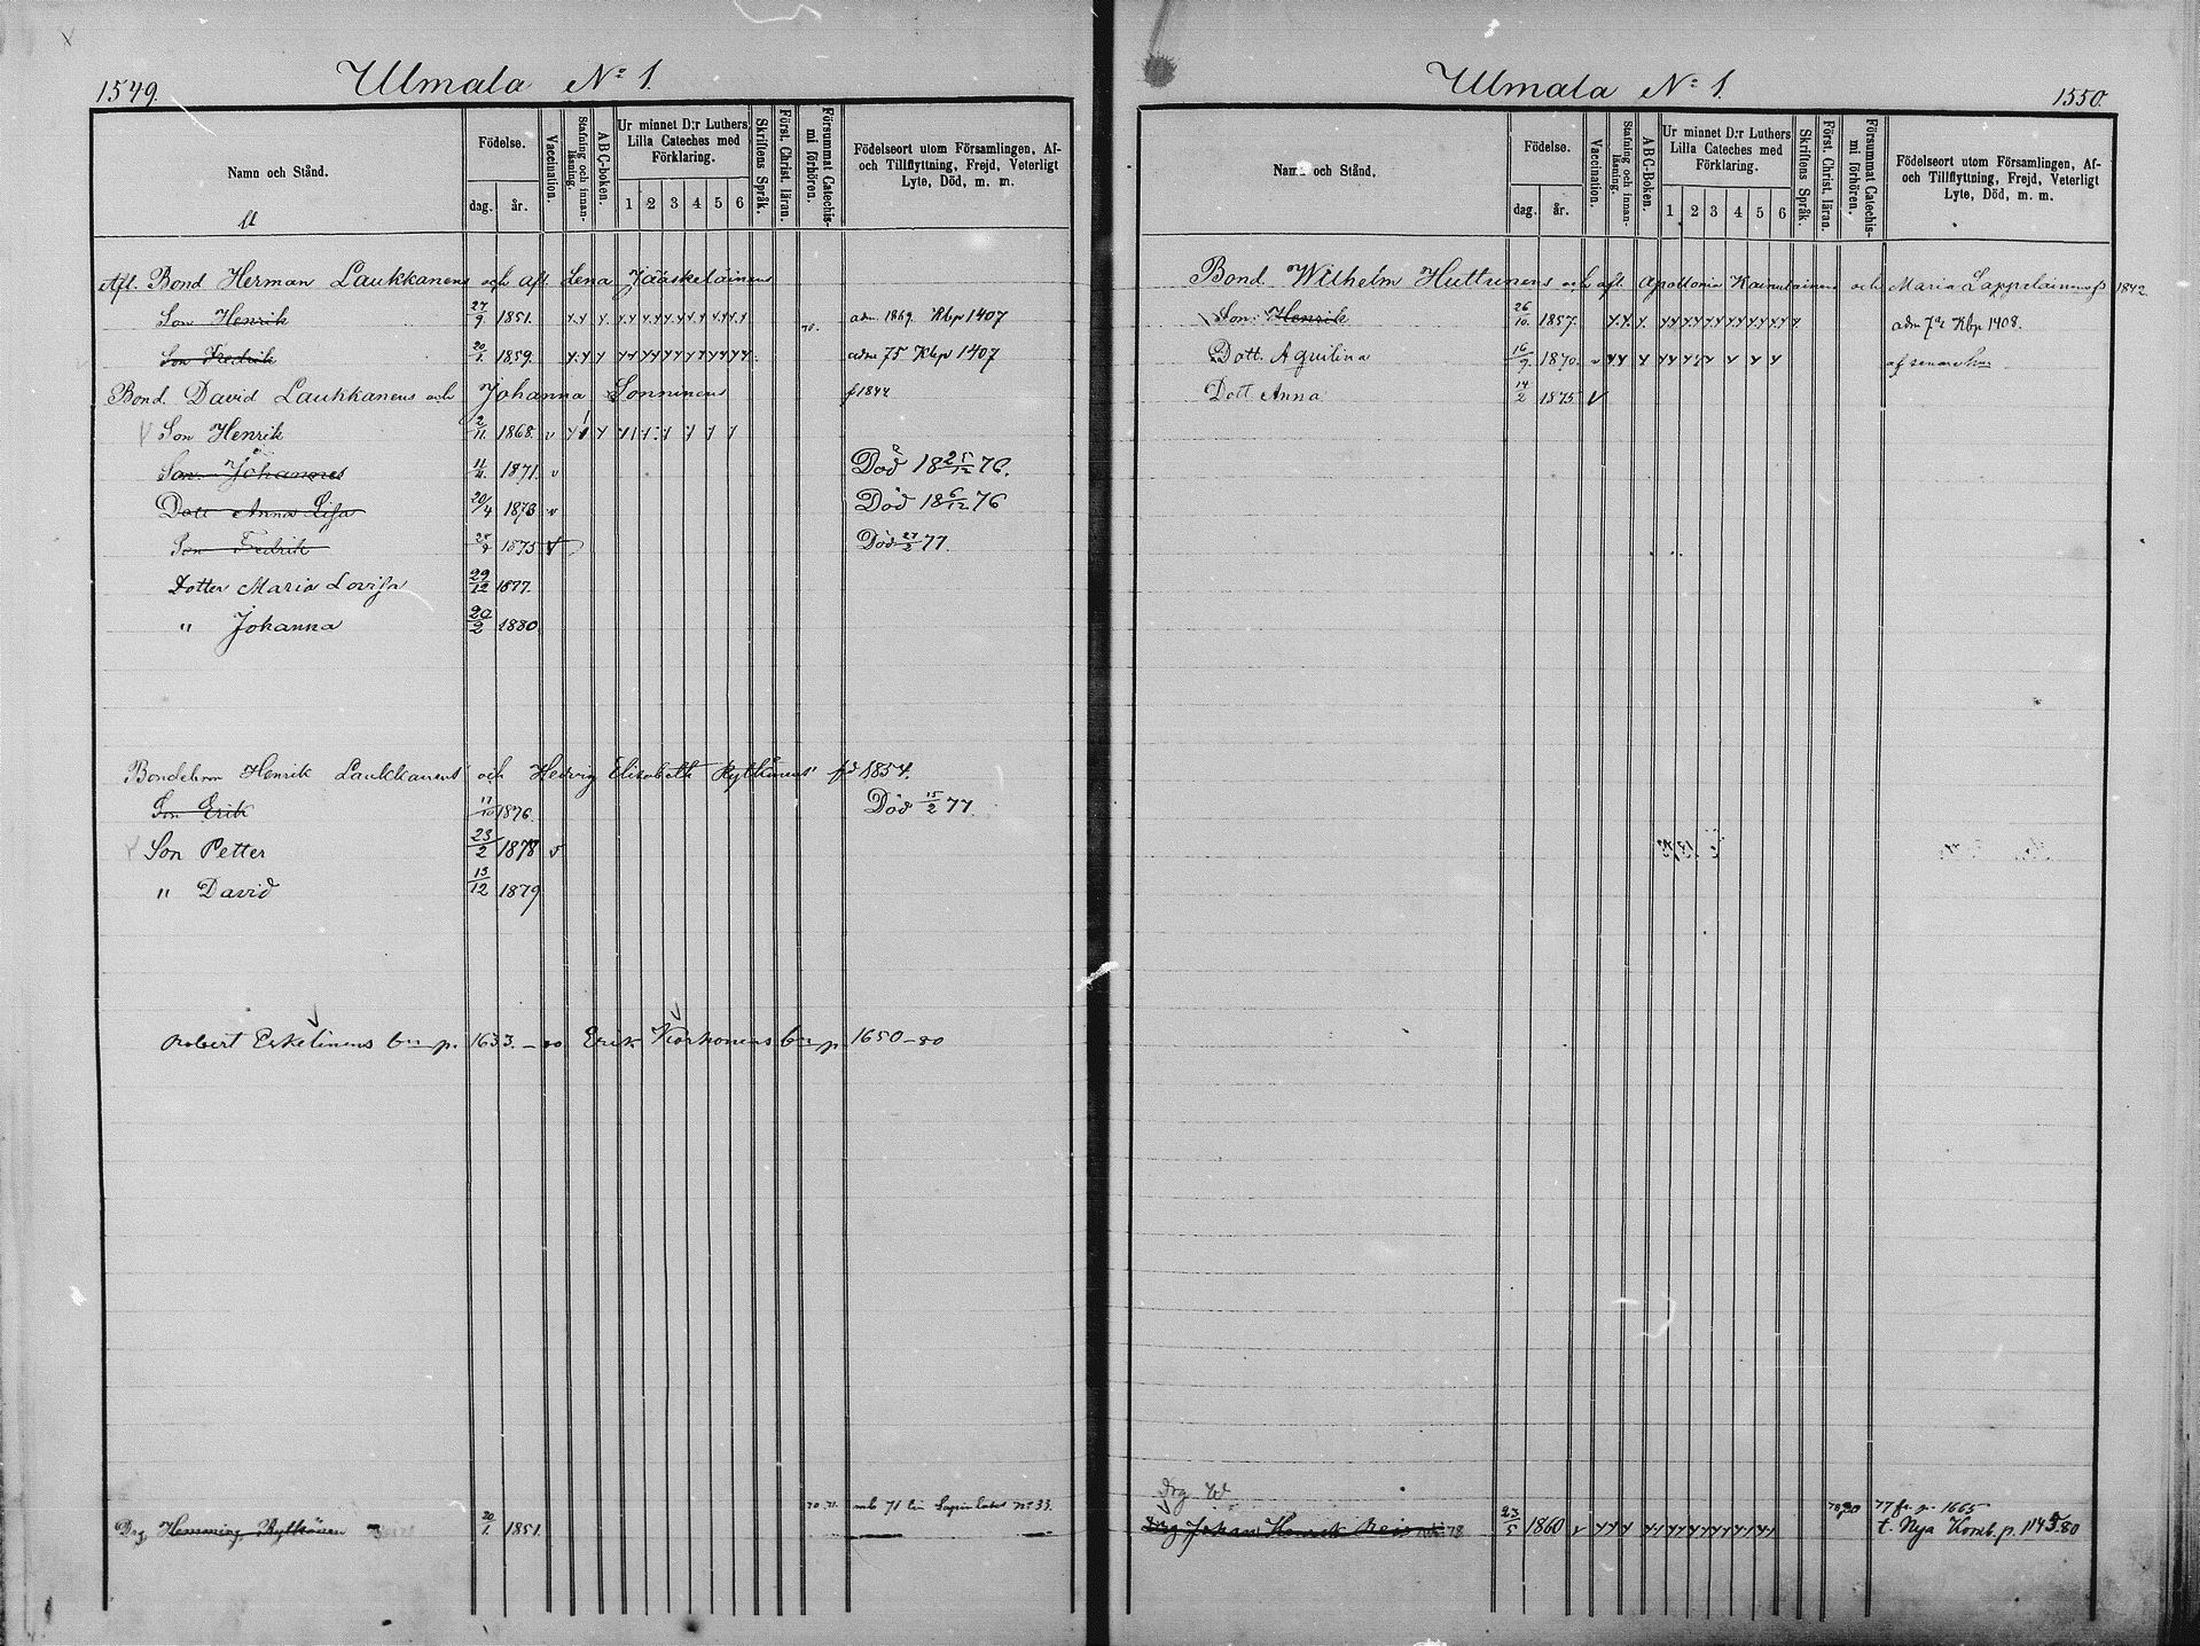 1549.
Ulmala No 1.
Namn och Stånd.
Födelse.
dag.
år.
Vaccination.
Stafning och innanläsning.
ABC-boken.
Ur minnet D:r Luthers Lilla Cateches med Förklaring.
1 2 3 4 5 6
Skriftens Språk.
Först. Christ. läran.
Försummat Catechismi förhören.
Födelseort utom Församlingen, Af- och Tillflyttning, Frejd, Veterligt Lyte, Död, m. m.
Afl. Bond Herman Laukkanens och afl. Lena Jääskeläinens
Son Henrik 27/9 1851. 70. adm 1869. Kbp 1407
Son Fredrik 20/1. 1859. adm 75 Kbp 1407
Bond. David Laukkanens och Johanna Sonninens f 1844
Son Henrik 2/11. 1868. v
Son Johannes 11/11. 1871. v Död 18 25/12 76.
Dott Anna Lisa 20/4 1873 v Död 18 6/12 76
Son Fedrik 1875 v Död 27/2 77.
Dotter Maria Lovisa 29/12 1877.
" Johanna 20/2 1880
Bondehm Henrik Laukkanens och Hedvig Elisabeth Rytkönens fd 1854.
Son Erik 17/10 1876. Död 15/2 77.
Son Petter 23/2 1878 v
" David 13/12 1879
Robert Eskelinens p. 1633. – 80 Erik Korhonens p 1650–80
70. 71. 71 No 33.
Drg. Hemming Rytkönen 20/1. 1851.
Ulmala No 1.
1550.
Namn och Stånd.
Födelse.
dag.
år.
Vaccination.
Stafning och innanläsning.
ABC-Boken.
Ur minnet D:r Luthers Lilla Cateches med Förklaring.
1 2 3 4 5 6
Skriftens Språk.
Först. Christ. läran.
Försummat Catechismi förhören.
Födelseort utom Församlingen, Af- och Tillflyttning, Frejd, Veterligt Lyte, Död, m. m.
Bond. Wilhelm Huttunens och afl. Apollonia Kainulainens och Maria Lappalainens f 1842
Son Henrik 26/10. 1857. adm 72 Kbp 1408.
Dott. Aquilina 16/9. 1870. af senare
Dott Anna 14/2 1875 v
Drg
77 fr. p. 1665
Drg Johan Henrik 78 23/5 1860 v t. Nya Komb. p. 1143.80